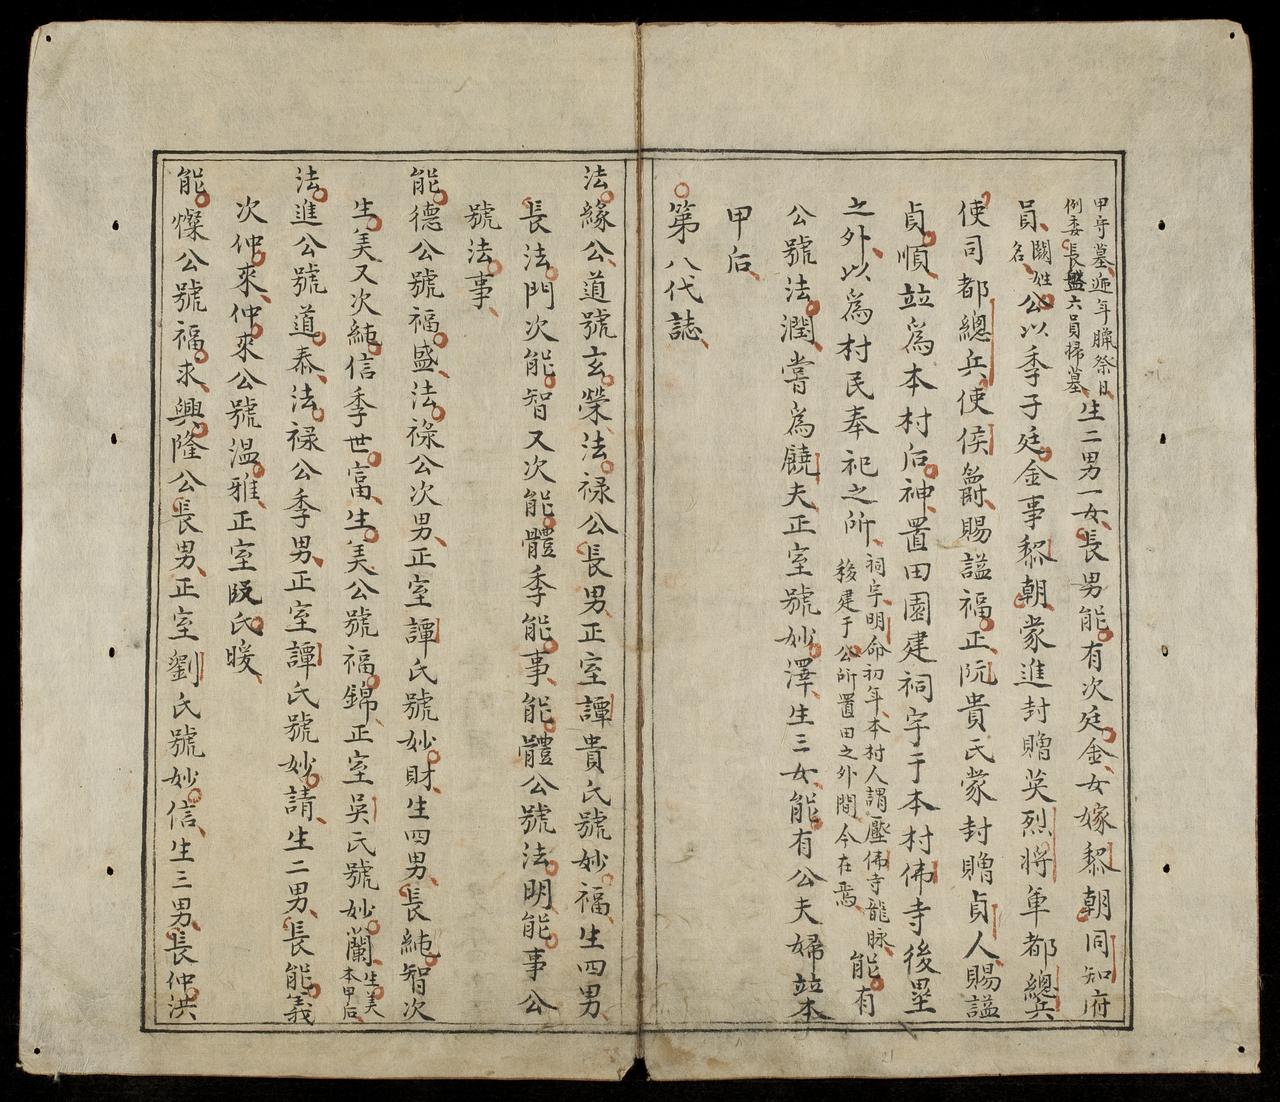 甲守墓近年臘祭日例委長盤六員掃墓生二男一女長男能有次廷金女嫁黎朝同知府
員闕姓名公以季子廷金事黎朝蒙進封贈英烈將軍都總兵
使司都總兵使侯爵賜諡福正阮貴氏蒙封贈貞人賜諡
貞順並爲本村后神置田園建祠宇于本村佛寺後塁
之外以爲村民奉祀之所祠宇明命初年本村人謂壓佛寺龍脉移建于公所置田之外間今在焉能有
公號法潤嘗爲饒夫正室號妙澤生三女能有公夫婦並本
甲后
第八代誌
法緣公道號玄榮法祿公長男正室譚貴氏號妙福生四男
長法門次能智又次能體季能事能體公號法明能事公
號法事
能德公號福盛法祿公次男正室譚氏號妙財生四男長純智次
生美又次純信季世富生美公號福錦正室吳氏號妙蘭生美本甲后
法進公號道泰法祿公季男正室譚氏號妙請生二男長能義
次仲來仲來公號溫雅正室阮氏暖
能燦公號福求興隆公長男正室劉氏號妙信生三男長仲洪